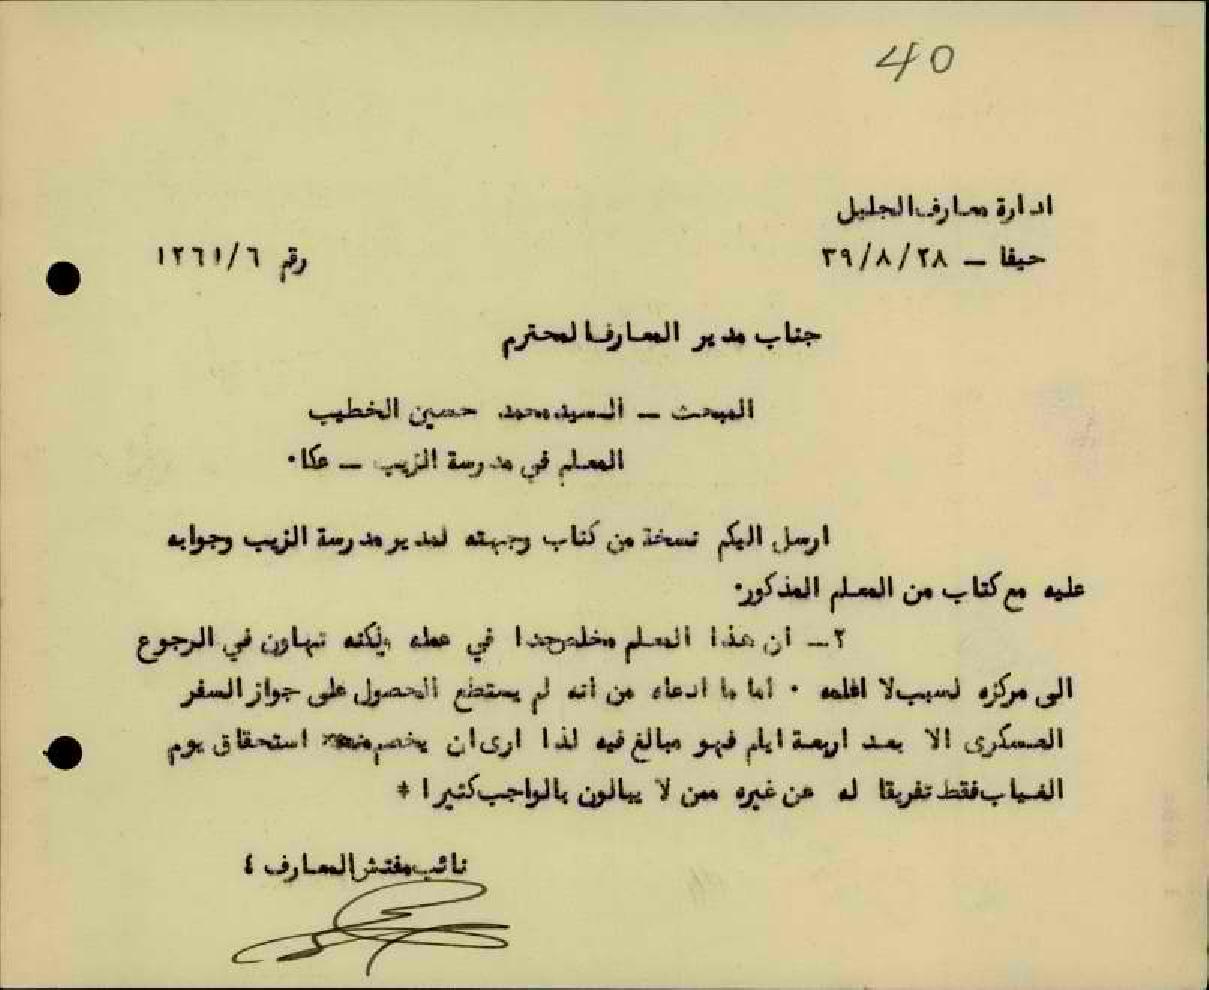 40
ادارة معارف الجليل
حيفا ــ ٢٨/٨/٣٩ رقم ١٢٦١/٦
جناب مدير المعارف المحترم
المبحث ــ السيد محمد حسين الخطيب
المعلم في مدرسة الزيب ــ عكا٠
ارسل اليكم نسخة من كتاب وجهته لمدير مدرسة الزيب وجوابه
عليه مع كتاب من المعلم المذكور٠
٢ــ ان هذا المعلم مخلص جدا في عمله ولكنه تهاون في الرجوع
الى مركزه لسبب لا اعلمه ٠ اما ما ادعاه من انه لم يستطع الحصول على جواز السفر
العسكرى الا بعد اربعة ايام فهو مبالغ فيه لذا ارى ان يخصم استحقاق يوم
الغياب فقط تفريقا له عن غيره ممن لا يبالون بالواجب كثيرا *
نائب مفتش المعارف ؛